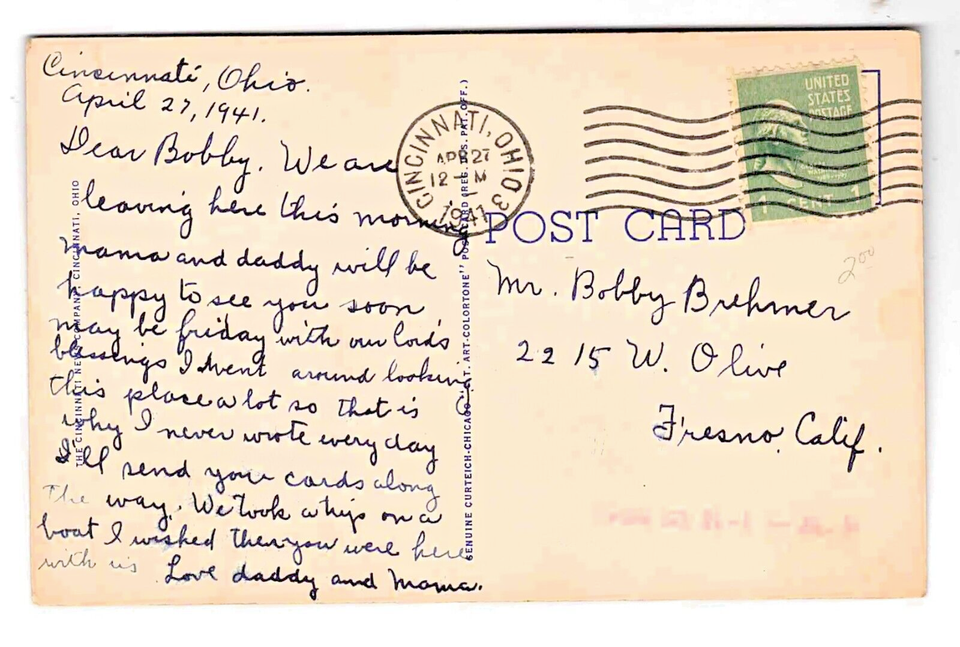 Cincinnati, Ohio.
April 27, 1941.
Dear Bobby. We are
leaving here this morning
mama and daddy will be
happy to see you soon
may be friday with our lord's
blessings I went around looking
this place a lot so that is
why I never wrote every day
I'll send you cards along
The way. We took a trip on a
boat I wished then you were here
with us Love daddy and Mama.
THE CINCINNATI NEWS COMPANY, CINCINNATI, OHIO
GENUINE CURTEICH-CHICAGO "C.T. ART-COLORTONE" POST CARD (REG. U.S. PAT. OFF.)
CINCINNATI, OHIO 3
APR 27
12 - M
1941
UNITED
STATES
POSTAGE
1 CENT 1
POST CARD
200
Mr. Bobby Brehmer
2215 W. Olive
Fresno, Calif.